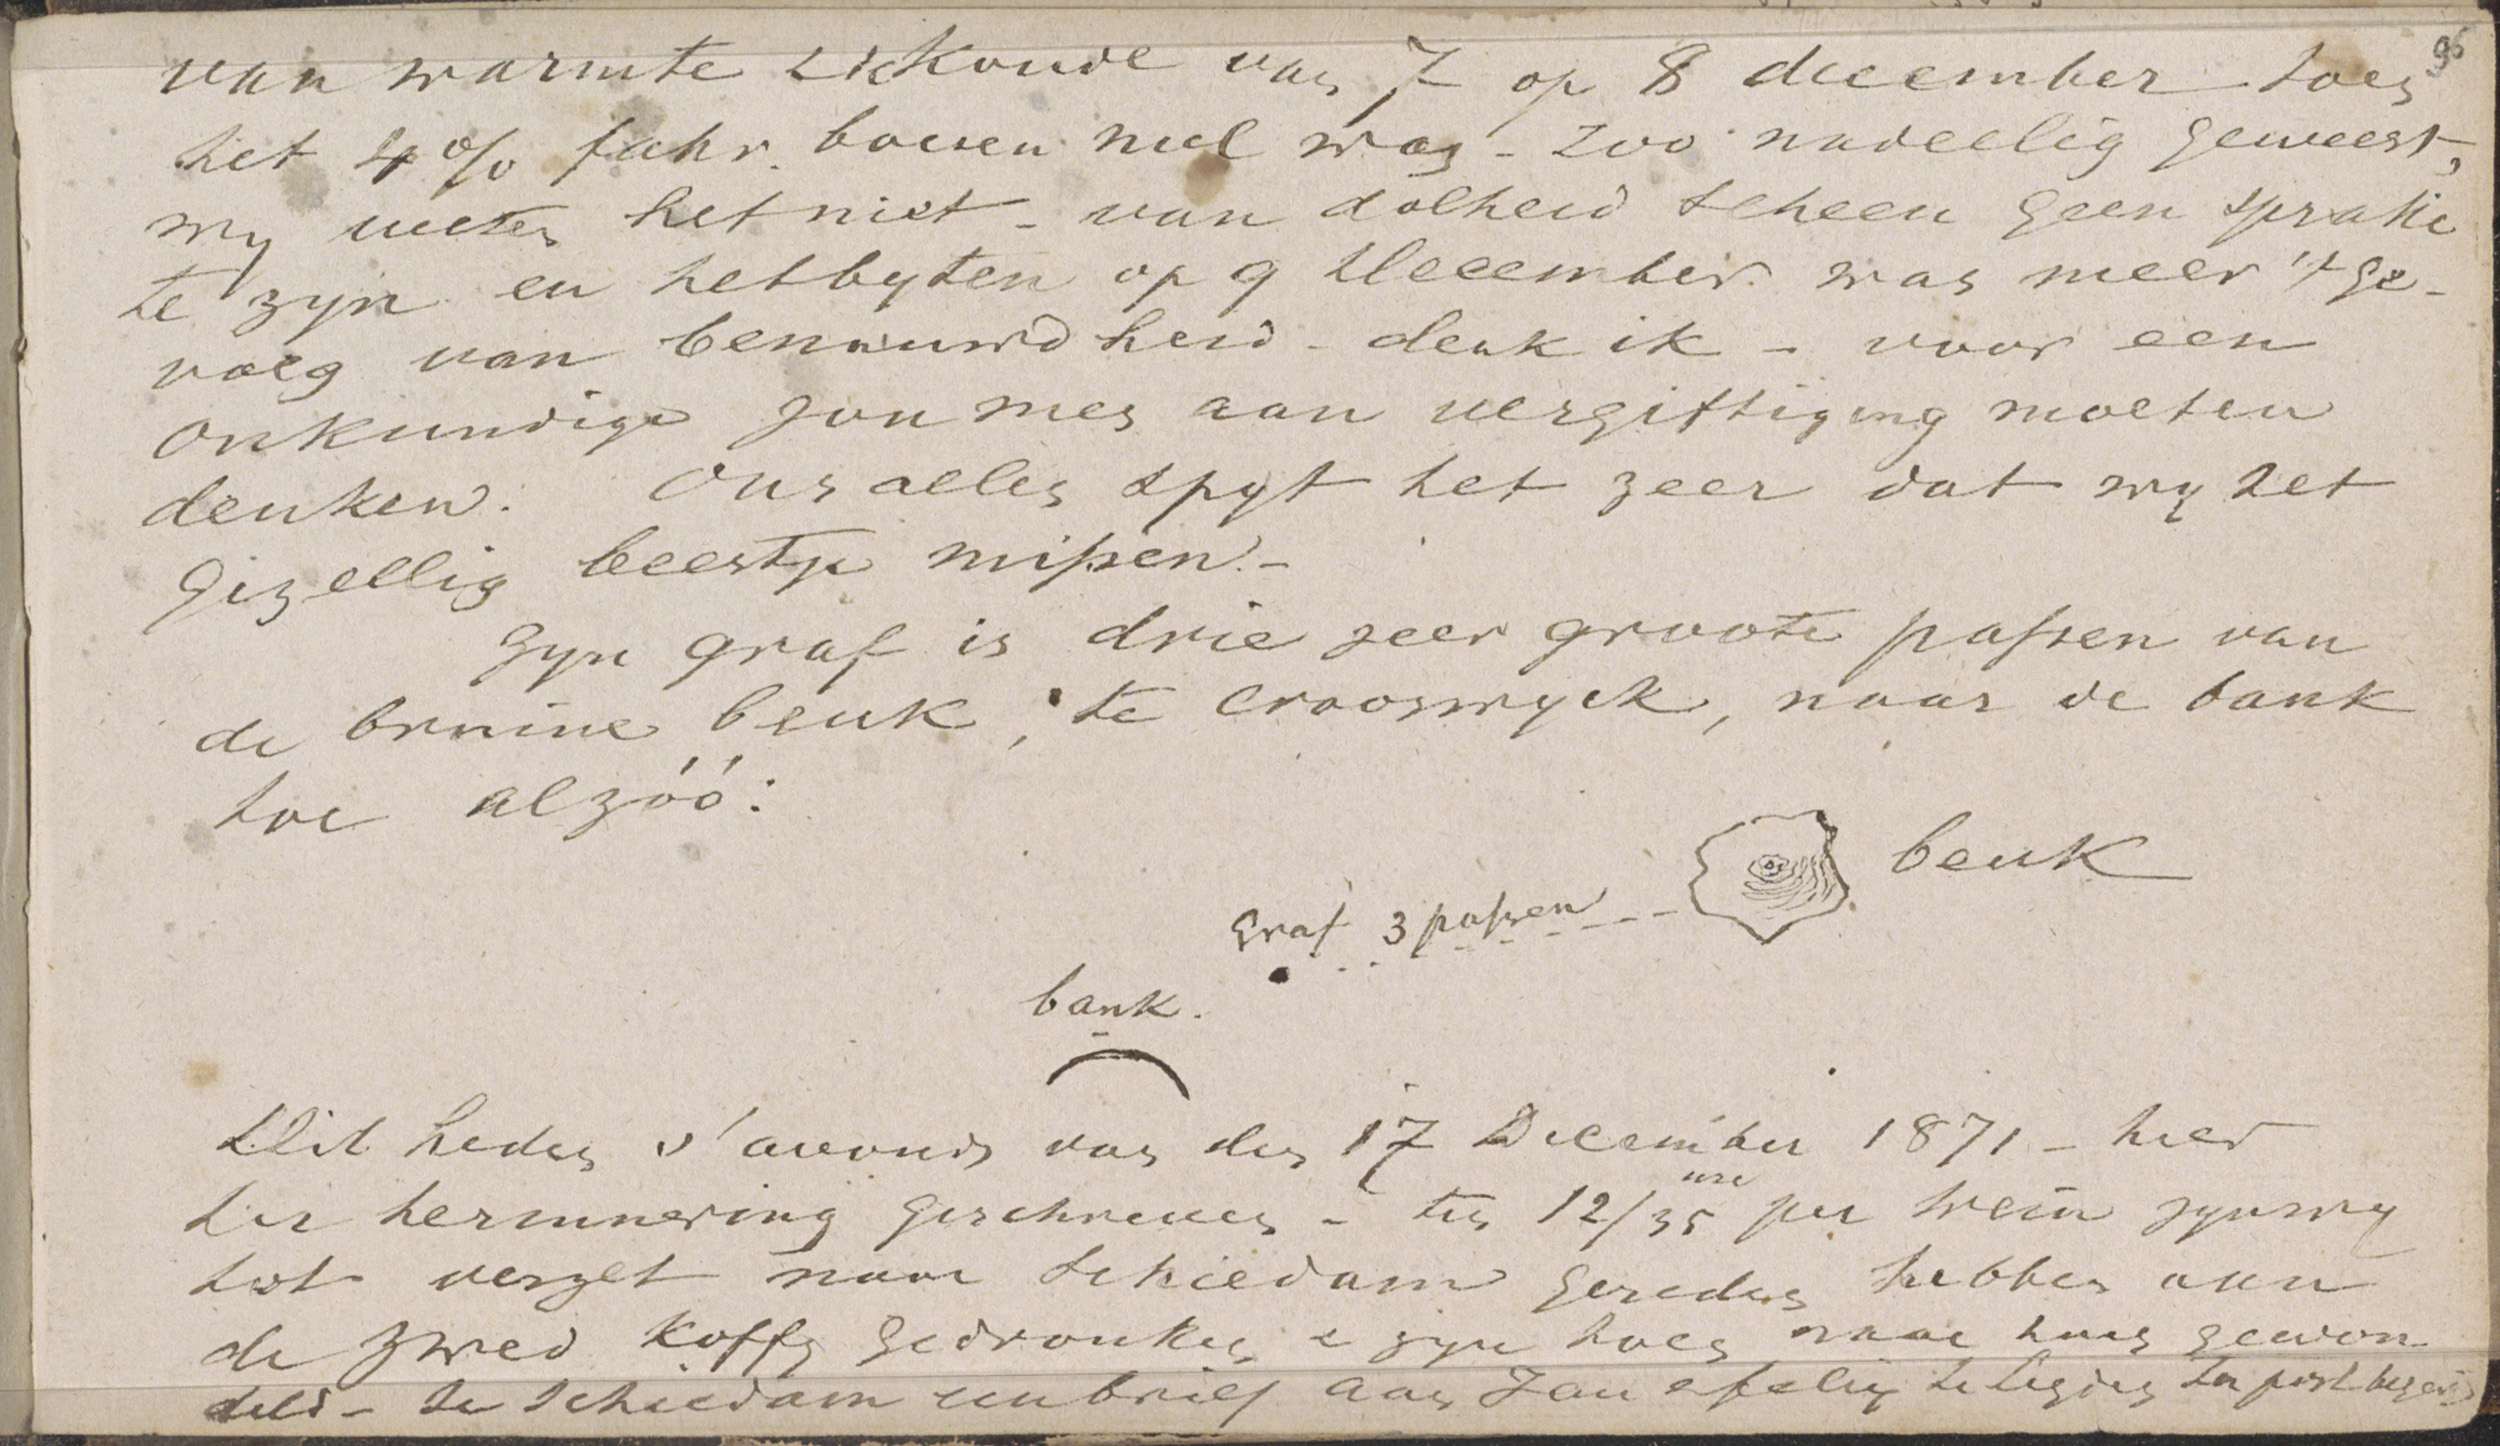 95
van warmte & koude van 7 op 8 december toen
het 4% fahr. boven nul was - zoo nadeelig geweest,
wy weten het niet - van dolheid scheen geen sprake
te zyn en het byten op 9 December was meer 't ge-
volg van benauwdheid - denk ik - voor een
onkundige zou men aan vergiftiging moeten
denken. Ons allen spyt het zeer dat wy het
gezellig beestje missen. -
Zyn graf is drie zeer groote passen van
de bruine beuk, te Crooswyck, naar de bank
toe alzóó:
beuk
Graf 3 passen
bank.
Dit heden s'avonds van den 17 December 1871 - hier
ter herinnering geschreven - ten 12/35 ure per trein zyn wy
tot verzet naar Schiedam gereden hebben aan
de Zwed koffy gedronken & zyn toen naar huis gewan-
deld - te Schiedam een brief aan Jan te Leyden ter post bezorgd